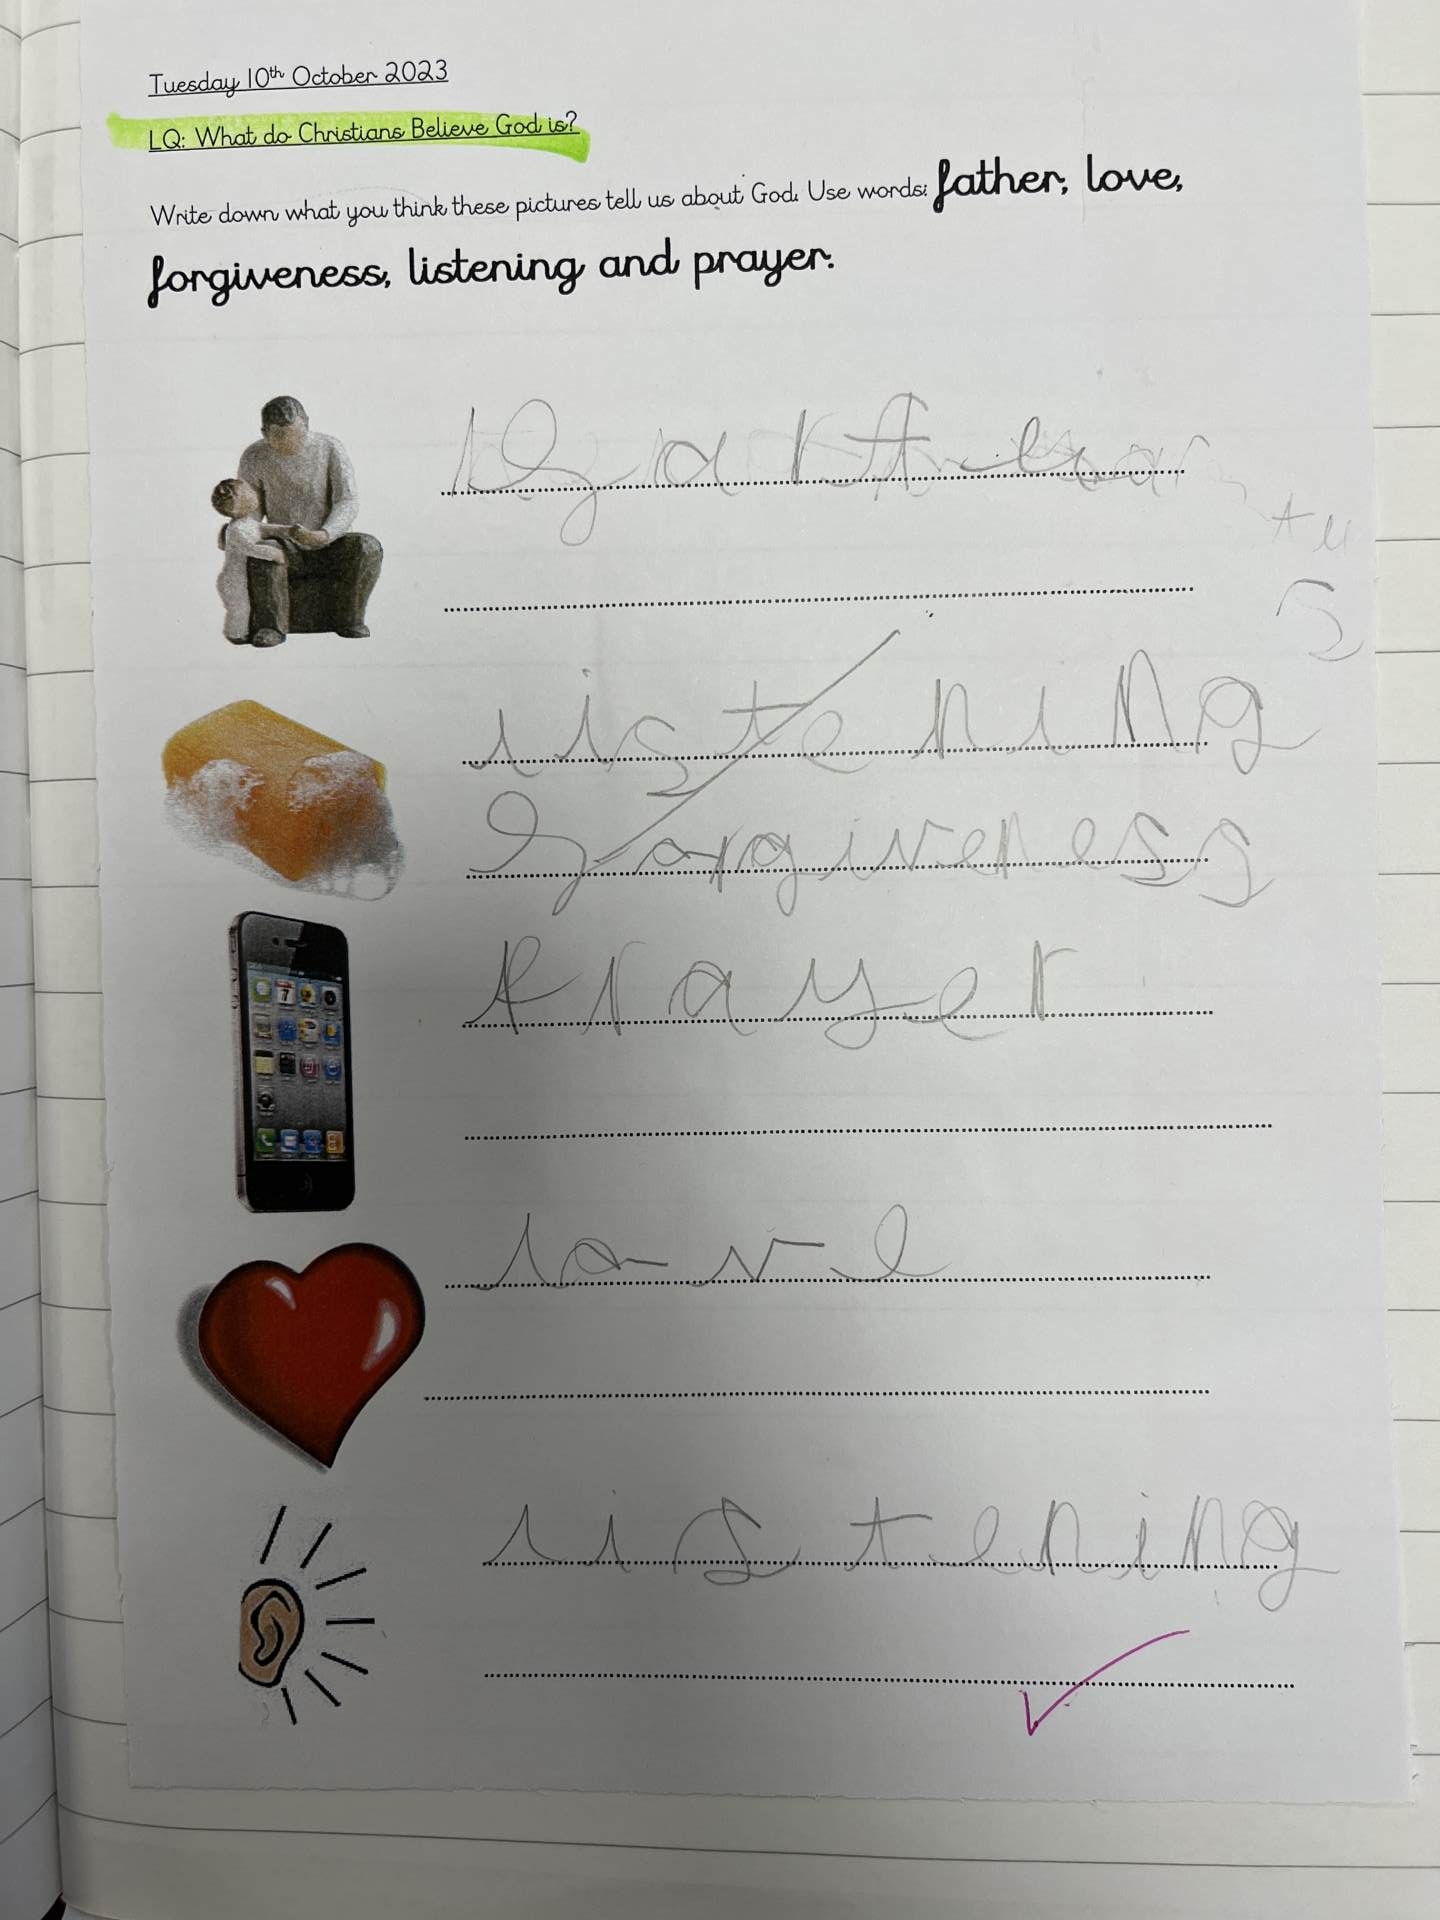 Tuesday 10th October 2023
LQ: What do Christians Believe God is?
Write down what you think these pictures tell us about God. Use words: father, love,
forgiveness, listening and prayer.
listening
forgiveness
Prayer
love
listening